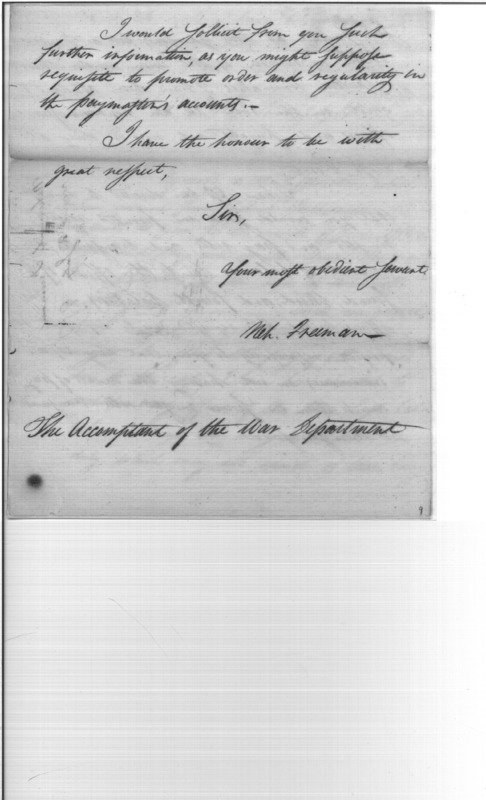 I would sollicit from you such
further information, as you might suppose
requisite to promote order and regularity in
the paymasters accounts.—
I have the honour to be with
great respect,
Sir,
Your most obedient servant
Neh. Freeman
The Accomptant of the War Department
9